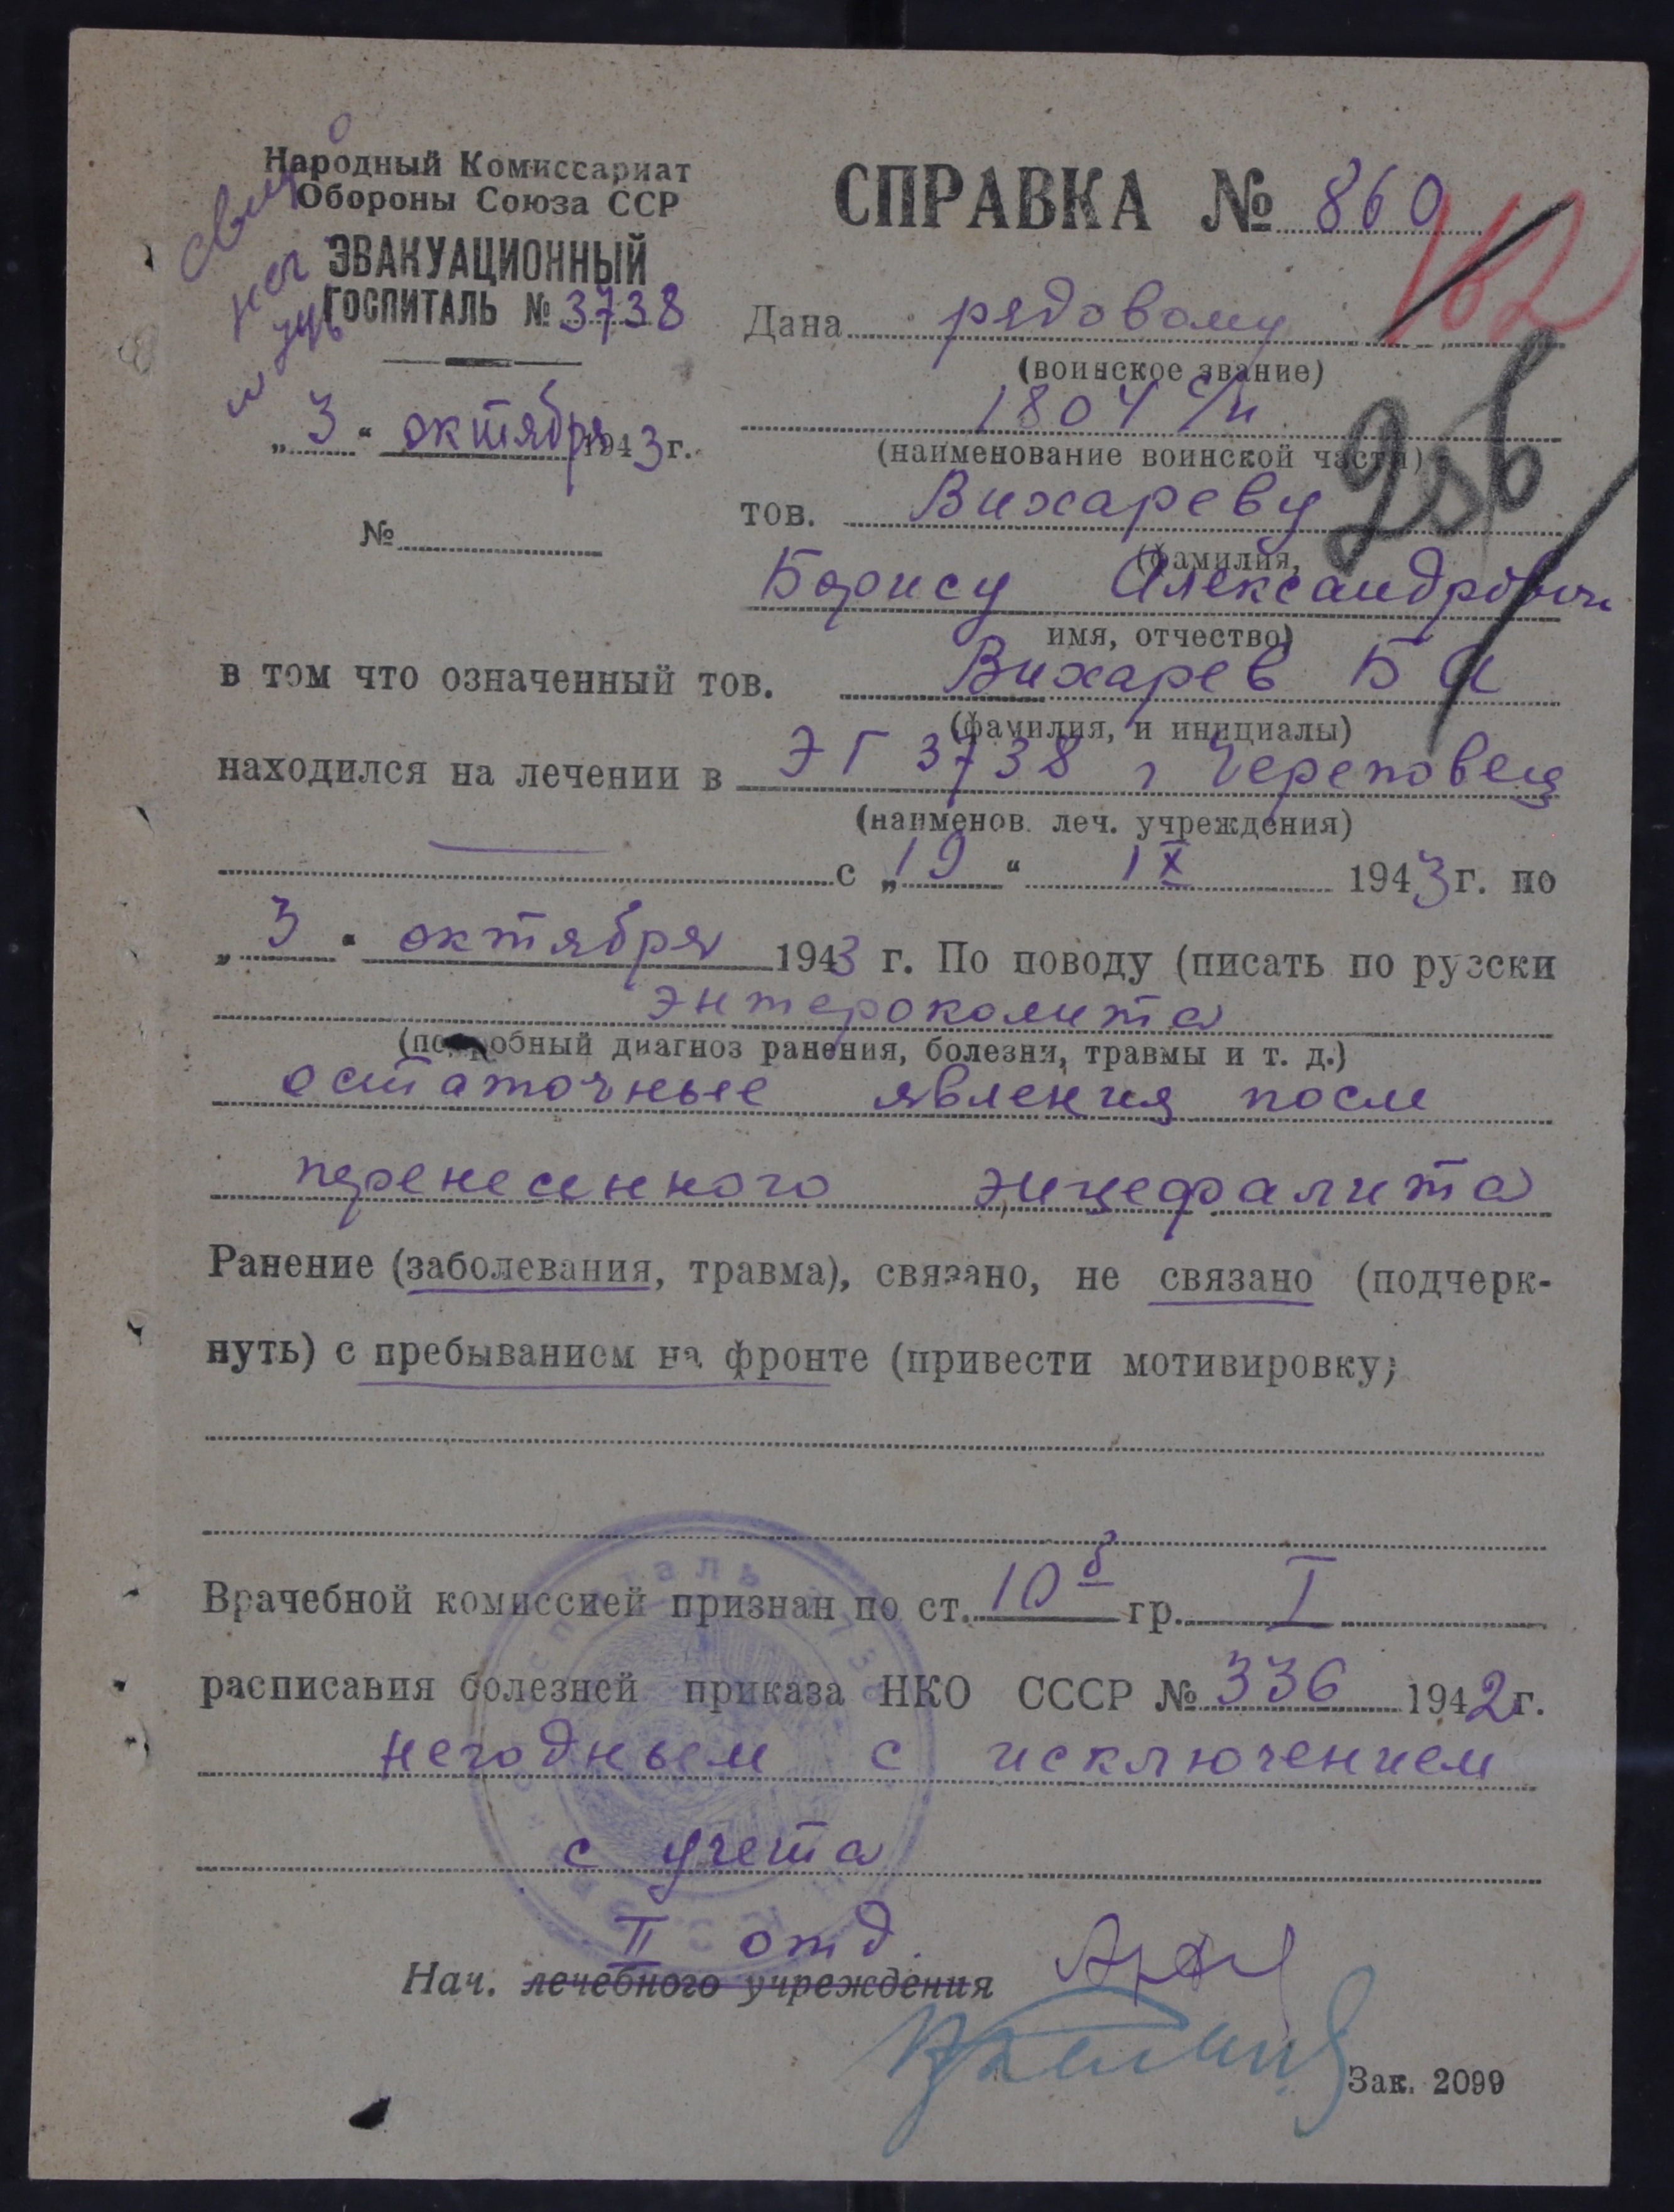 Народный Комиссариат
Обороны Союза ССР
ЭВАКУАЦИОННЫЙ
ГОСПИТАЛЬ № 3738
„3“ октября 1943 г.
№
СПРАВКА № 860
162
Дана рядовому
(воинское звание)
1804 с/п
(наименование воинской части)
тов. Вихареву
(фамилия,
Борису Александрович
имя, отчество)
в том что означенный тов. Вихарев Б А
(фамилия, и инициалы)
находился на лечении в ЭГ 3738 г Череповец
(наименов. леч. учреждения)
с „19“ IX 1943 г. по
„3“ октября 1943 г. По поводу (писать по русски
энтероколита
(подробный диагноз ранения, болезни, травмы и т. д.)
остаточные явления после
перенесенного энцефалита
Ранение (заболевания, травма), связано, не связано (подчерк-
нуть) с пребыванием на фронте (привести мотивировку;
Врачебной комиссией признан по ст. 10 б гр. I
расписавия болезней приказа НКО СССР № 336 1942 г.
негодным с исключением
с учета
II отд.
Нач. лечебного учреждения
Зак. 2099